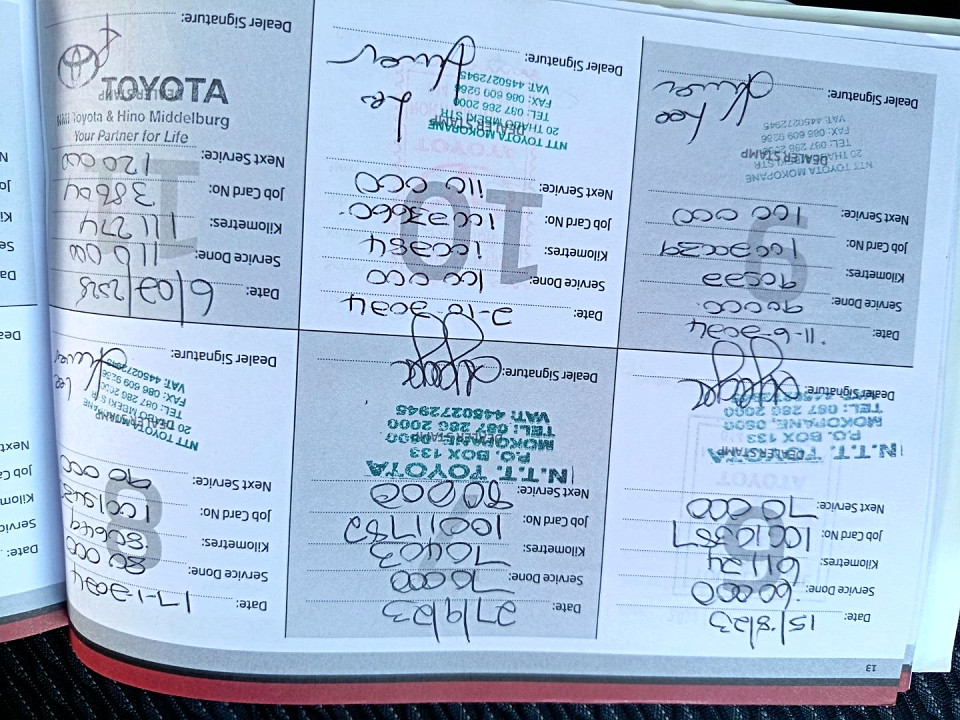 13
6
Date: 15/8/23
Service Done: 60000
Kilometres: 61124
Job Card No: 10010387
Next Service: 70 000
N.T.T. TOYOTA
DEALER STAMP
P.O. BOX 133
MOKOPANE, 0600
TEL: 087 286 2000
Dealer Signature:
7
Date: 27/9/23
Service Done: 70000
Kilometres: 70403
Job Card No: 10011782
Next Service: 80000
N.T.T. TOYOTA
P.O. BOX 133
MOKOPANE, 0600
DEALER STAMP
TEL: 087 286 2000
VAT: 4450272945
Dealer Signature:
8
Date: 17-1-2024
Service Done: 80 000
Kilometres: 80649
Job Card No:
Next Service: 90 000
NTT TOYOTA MOKOPANE
DEALER STAMP
20 THABO MBEKI STR
TEL: 087 286 2000
FAX: 086 609 9286
VAT: 4450272945
Lee
Dealer Signature:
9
Date: 11-6-2024
Service Done: 90000
Kilometres:
Job Card No:
Next Service: 100 000
NTT TOYOTA MOKOPANE
DEALER STAMP
20 THABO MBEKI STR
TEL: 087 286 2000
FAX: 086 609 9286
VAT: 4450272945
Lee
Dealer Signature:
10
Date: 2-10-2024
Service Done: 100 000
Kilometres: 100384
Job Card No: 10023660
Next Service: 110 000
NTT TOYOTA MOKOPANE
DEALER STAMP
20 THABO MBEKI STR
TEL: 087 286 2000
FAX: 086 609 9286
VAT: 4450272945
Lee
Dealer Signature:
11
Date: 6/02/2025
Service Done: 110 000
Kilometres: 111 274
Job Card No: 38604
Next Service: 120 000
Your Partner for Life
Toyota & Hino Middelburg
TOYOTA
DEALER STAMP
Dealer Signature:
Date: